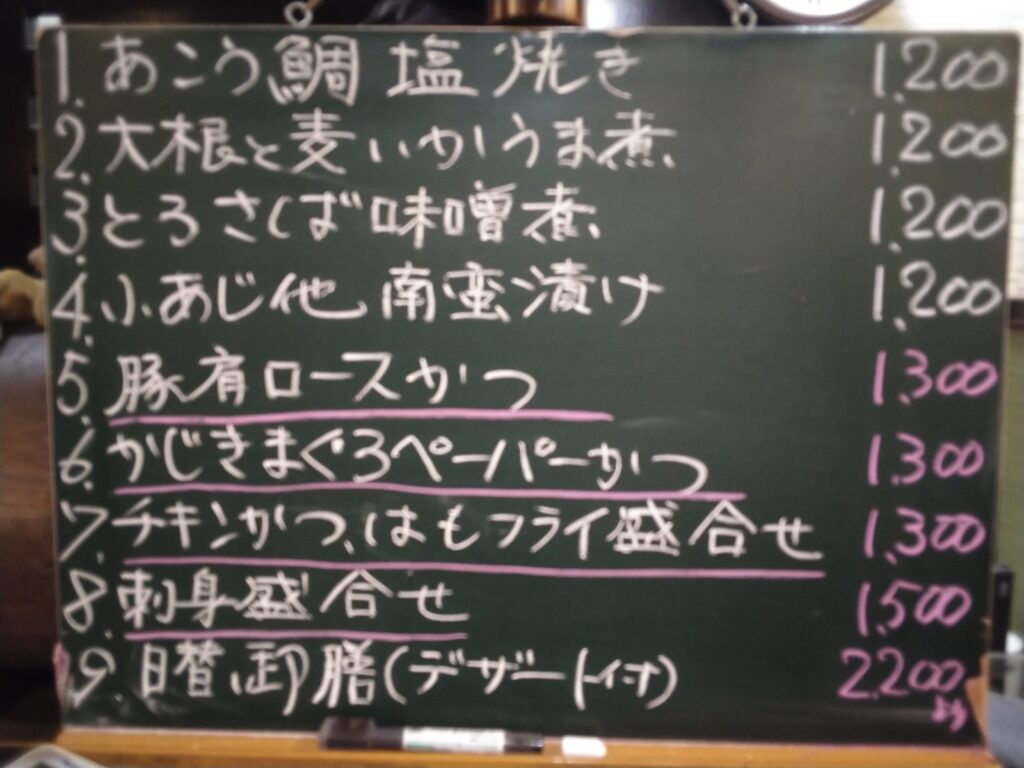 1. あこう鯛 塩焼き 1,200
2. 大根と麦いかうま煮 1,200
3. とろさば味噌煮 1,200
4. 小あじ他 南蛮漬け 1,200
5. 豚肩ロースかつ 1,300
6. かじきまぐろペーパーかつ 1,300
7. チキンかつ、はもフライ盛合せ 1,300
8. 刺身盛合せ 1,500
9. 日替い卸膳(デザート付) 2,200より